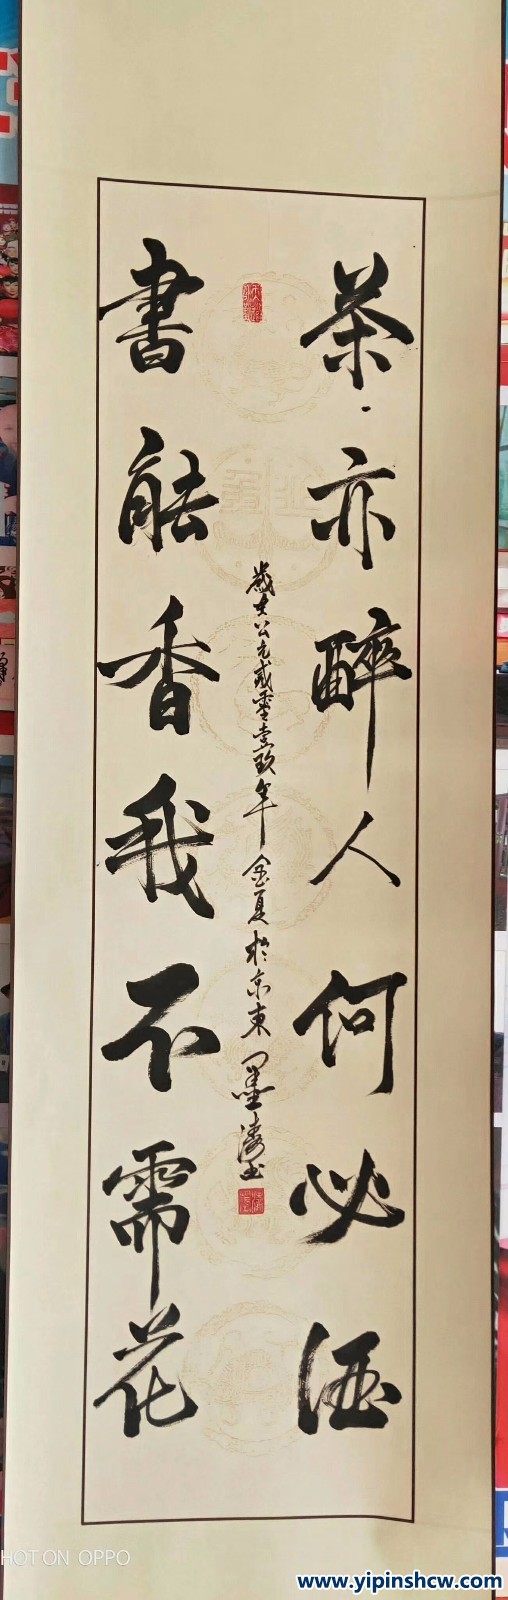 茶亦醉人何必酒
歲在公元貳零壹玖年金夏於京東墨濤书
書能香我不需花
HOT ON OPPO
www.yipinshcw.com